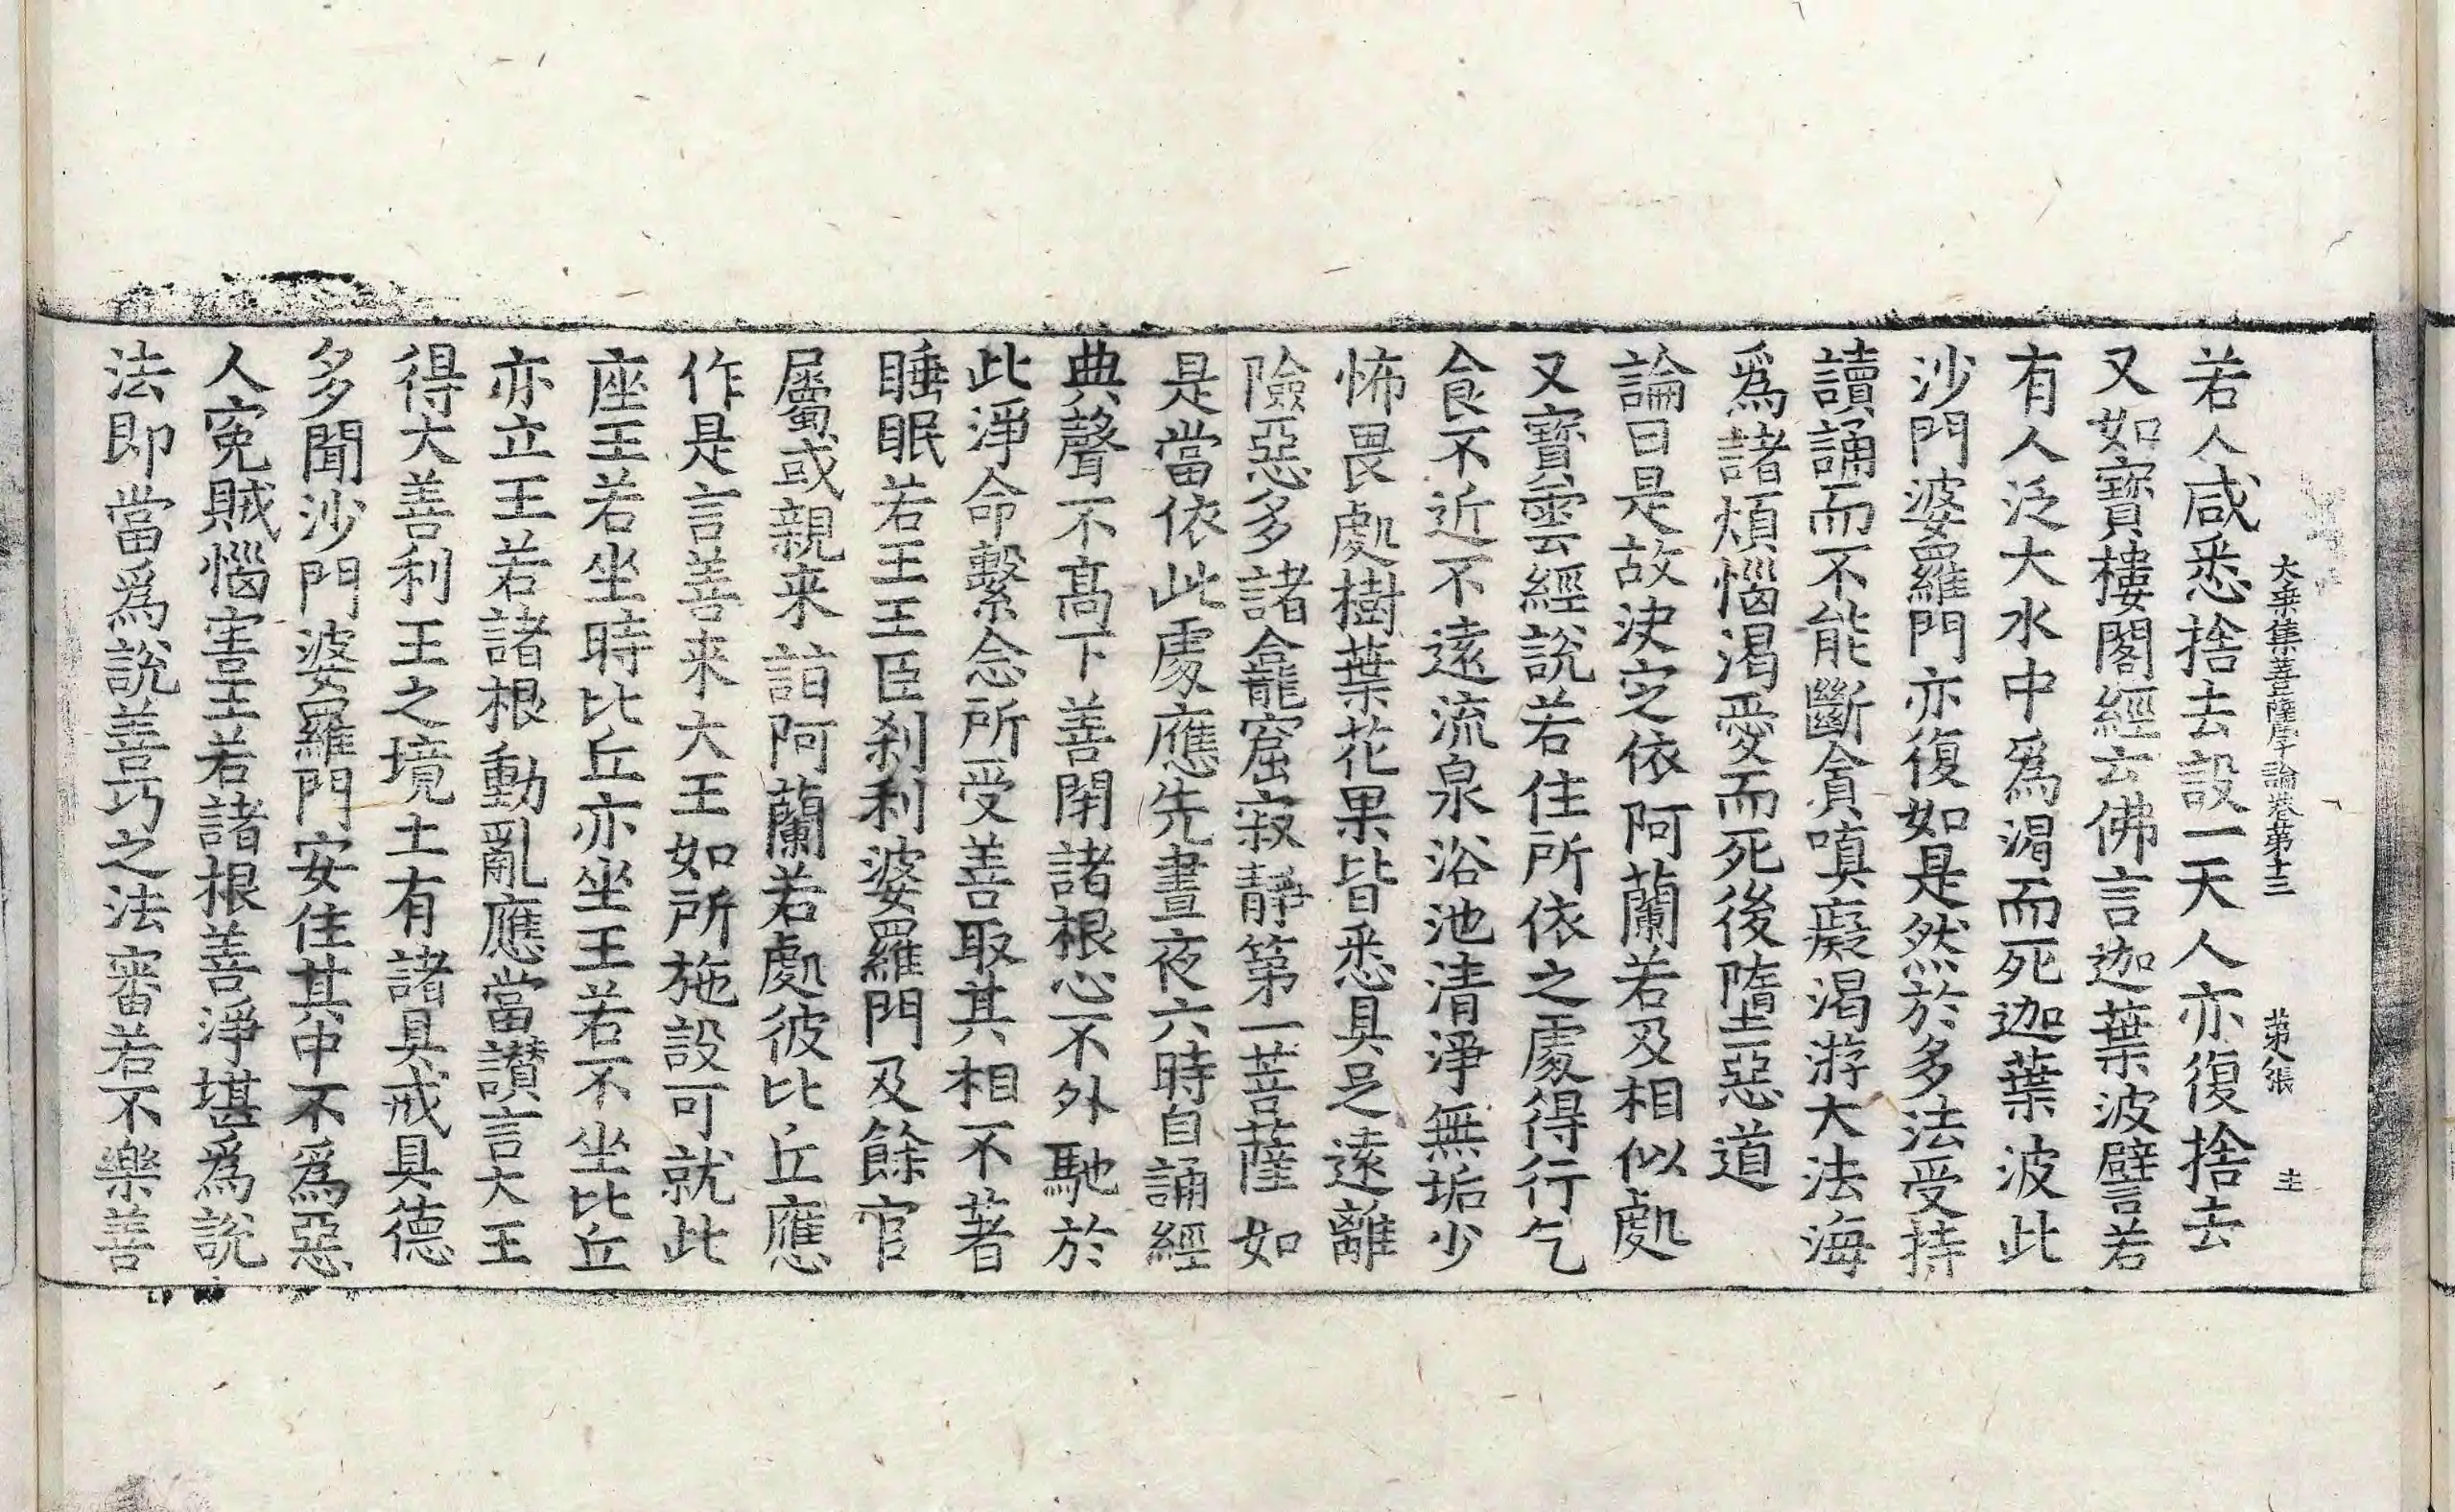 大乗集菩薩學論卷第十三 第八張 圭
若人咸悉捨去設一天人亦復捨去
又如寶樓閣經云佛言迦葉波譬若
有人泛大水中爲渴而死迦葉波此
沙門婆羅門亦復如是然於多法受持
讀誦而不能斷貪嗔癡渴游大法海
爲諸煩惱渴愛而死後墮惡道
論曰是故決定依阿蘭若及相似處
又寶雲經說若住所依之處得行乞
食不近不遠流泉浴池清淨無垢少
怖畏處樹葉花果皆悉具足遠離
險惡多諸龕窟寂靜第一菩薩如
是當依此處應先晝夜六時自誦經
典聲不高下善閉諸根心不外馳於
此淨命繫念所受善取其相不著
睡眠若王王臣剎利婆羅門及餘官
屬或親来詣阿蘭若處彼比丘應
作是言善来大王如所施設可就此
座王若坐時比丘亦坐王若不坐比丘
亦立王若諸根動亂應當讚言大王
得大善利王之境土有諸具戒具德
多聞沙門婆羅門安住其中不爲惡
人寃賊惱害王若諸根善淨堪爲說
法即當爲說善巧之法審若不樂善